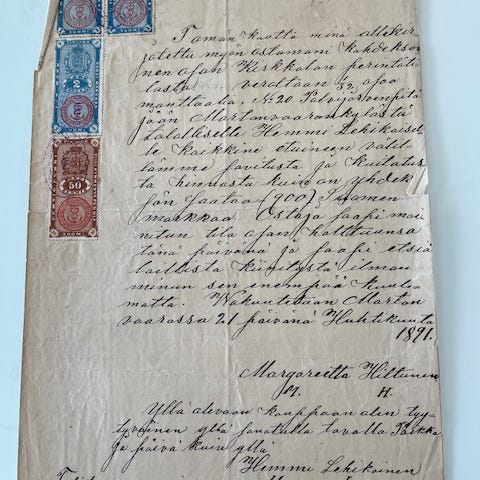 Taman kautta minä allekir-
jotettu myön ostamani kahdekso-
nen ajan Kirkkalan perintäti-
lasta verottaan
manttaalia, No 20 Polvijärvenpitä-
jään Martonvaarankylästä
talolliselle Hemmi Lehikoisel-
le kaikkine etuineen välit-
tämme sovitusta ja kuitatus-
ta hinnasta kuin on yhdek-
sän sataa (900) Suomen
markkaa. Ostaja saapi mai-
nitun tila ajan halttuunsa
tänä päivänä ja saapi etsiä
laillista kiinitystä ilman
minun sen enempää kuule-
matta. Wakuutetaan Marton
vaarassa 21 päivänä Huhtikuuta
1891.
Margareitta Hiltunen
M. H.
Yllä olevaan kauppaan olen tyy-
tyväinen yllä sanatulla tavalla Paikka
ja päivä kuin yllä
Hemmi Lehikoinen
50